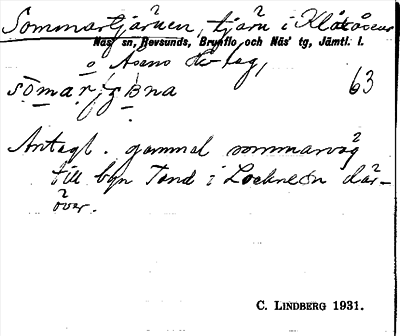 Sommartjärnen, tjärn i Klåkåsens
Näs sn, Revsunds, Brunflo och Näs' tg, Jämtl. l.
o Åsens
63
Antagl. gammal sommarväg
till byn Tand i Lockne sn där-
över.
C. LINDBERG 1931.